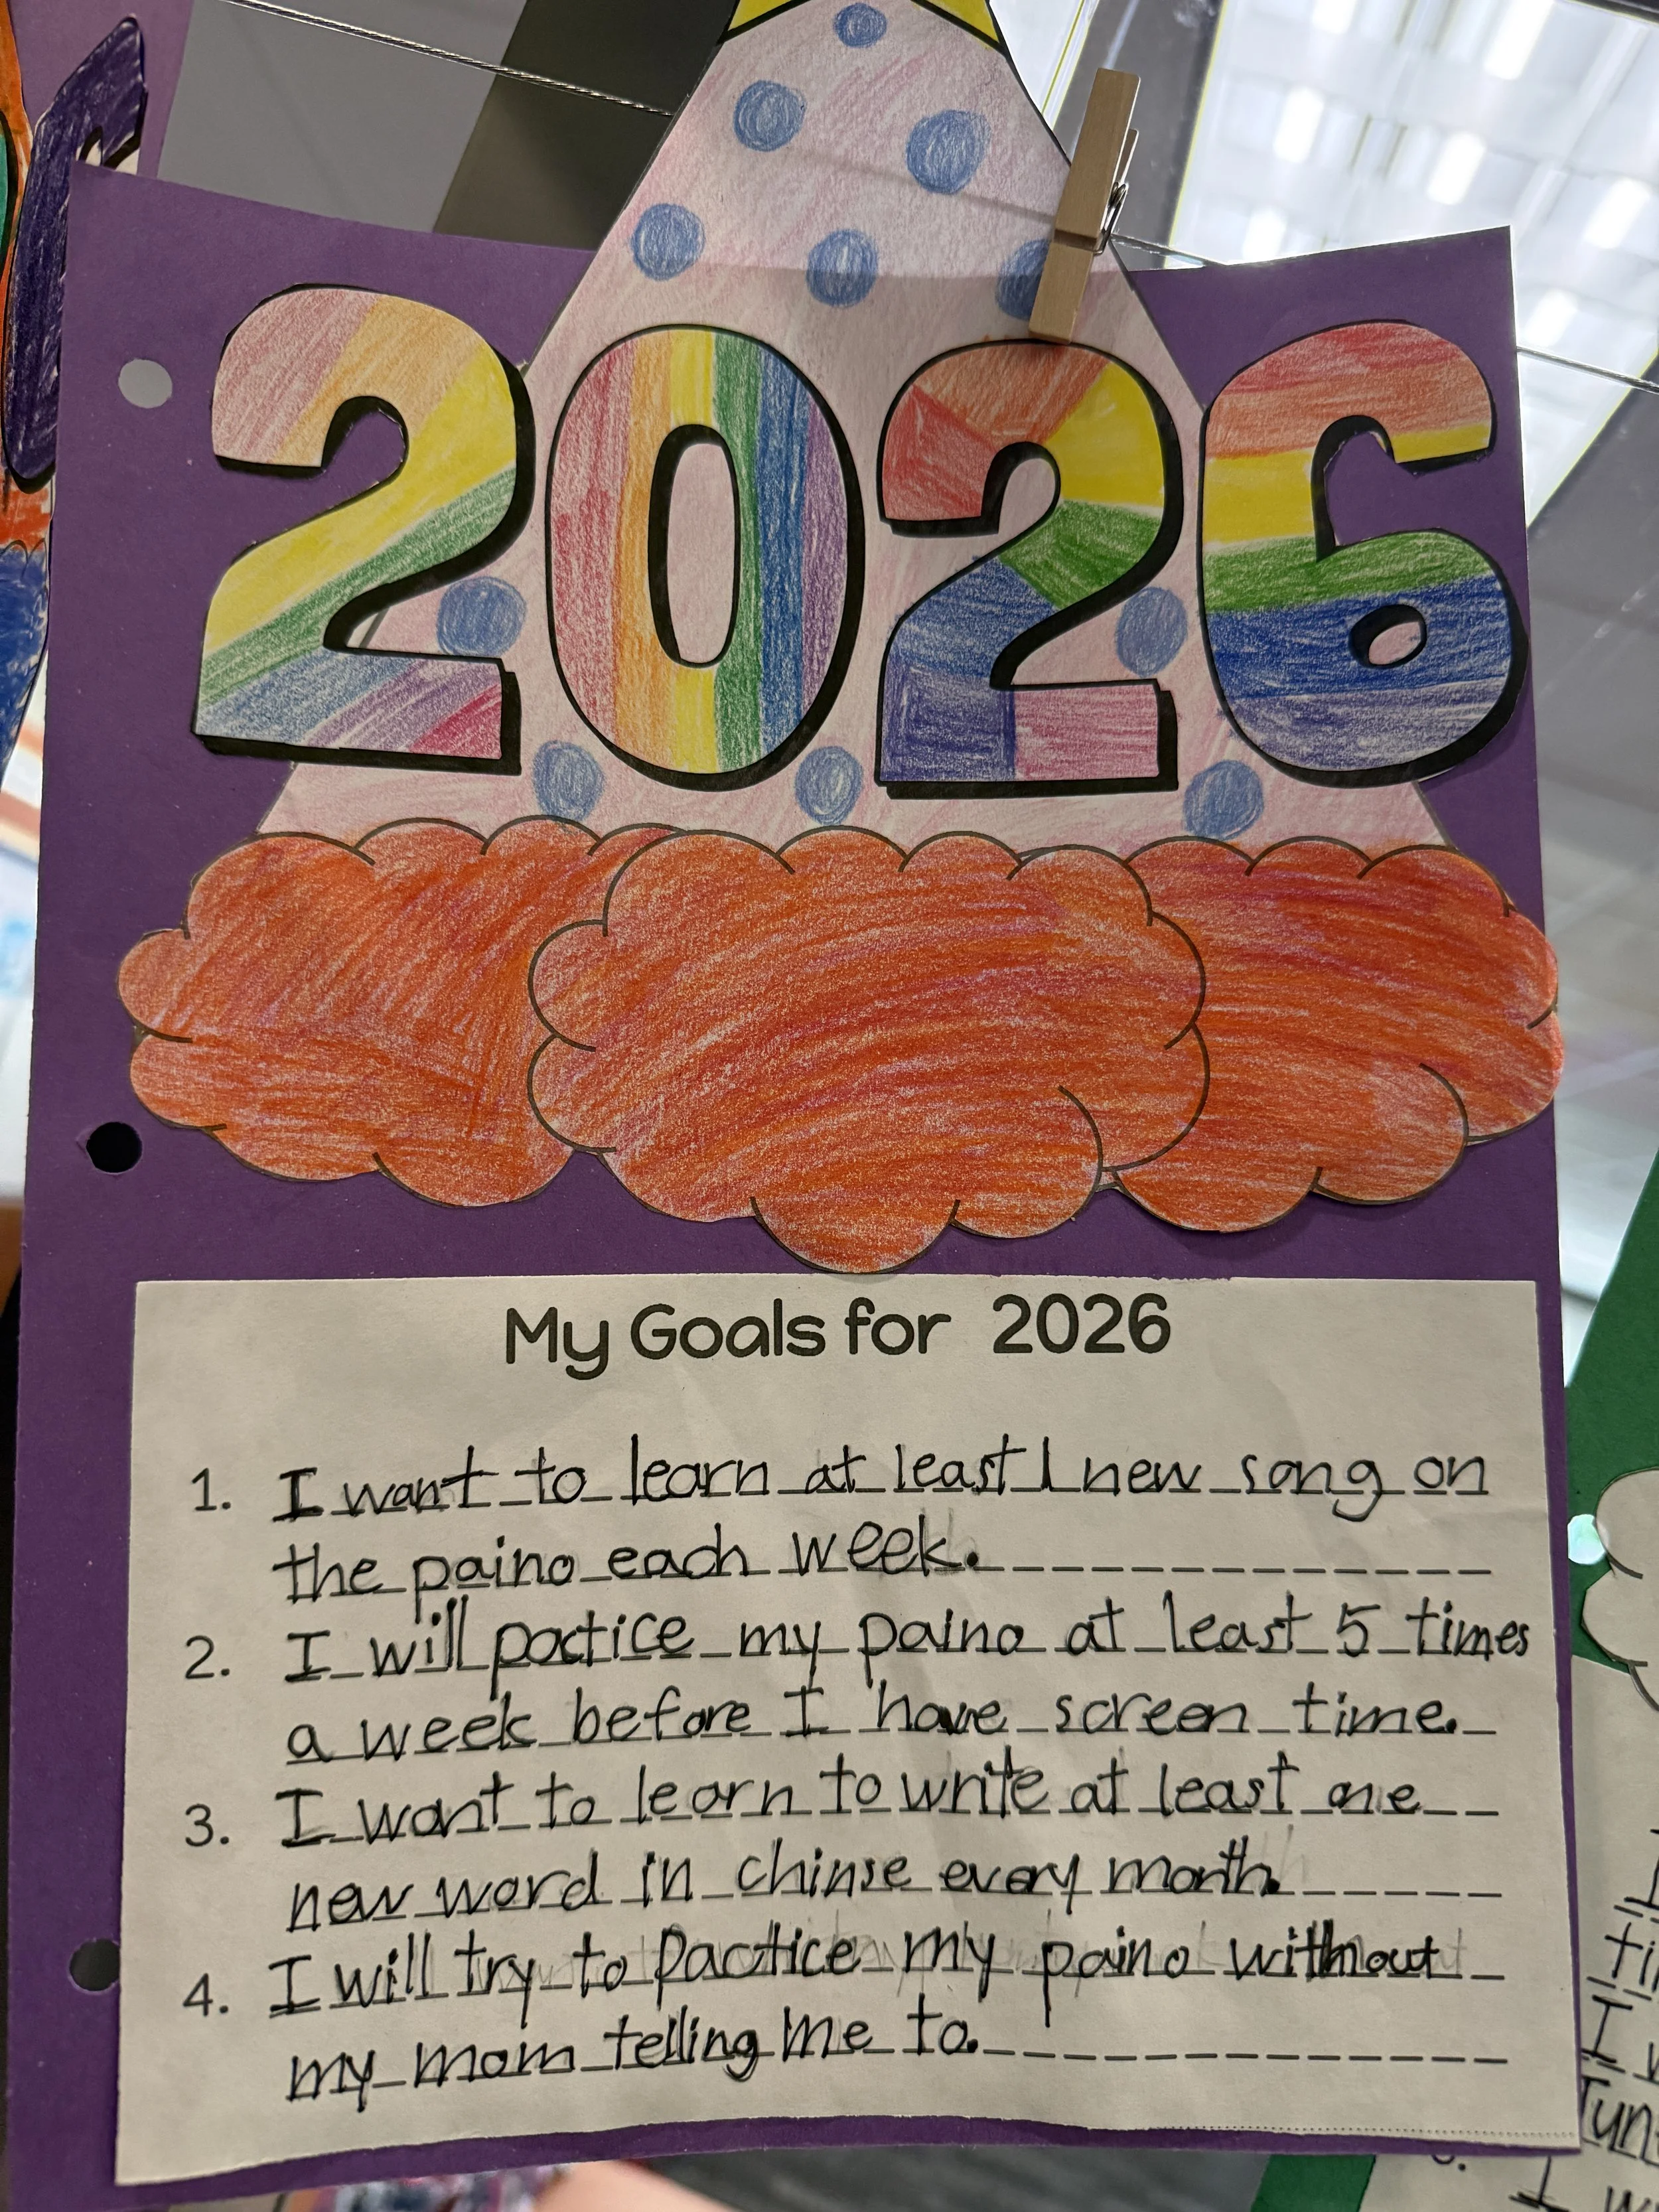 2026
My Goals for 2026
1. I want to learn at least 1 new song on
the paino each week.
2. I will pactice my paino at least 5 times
a week before I have screen time.
3. I want to learn to write at least one
new word in chinse every month.
4. I will try to pactice my paino without
my mom telling me to.